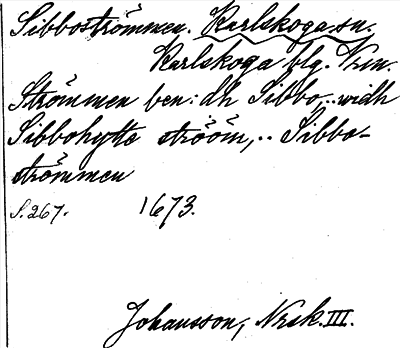 Sibboströmmen. Karlskoga sn.
Karlskoga blg. Vrm.
Strömmen ben: dh Sibbo,.. widh
Sibbohytte strööm,.. Sibbo-
strömmen
S. 267. 1673.
Johansson, Nrsk. III.